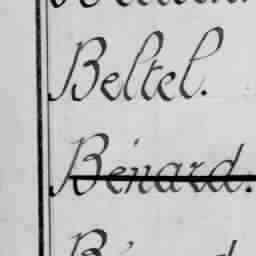 Beltel.
Bénard.